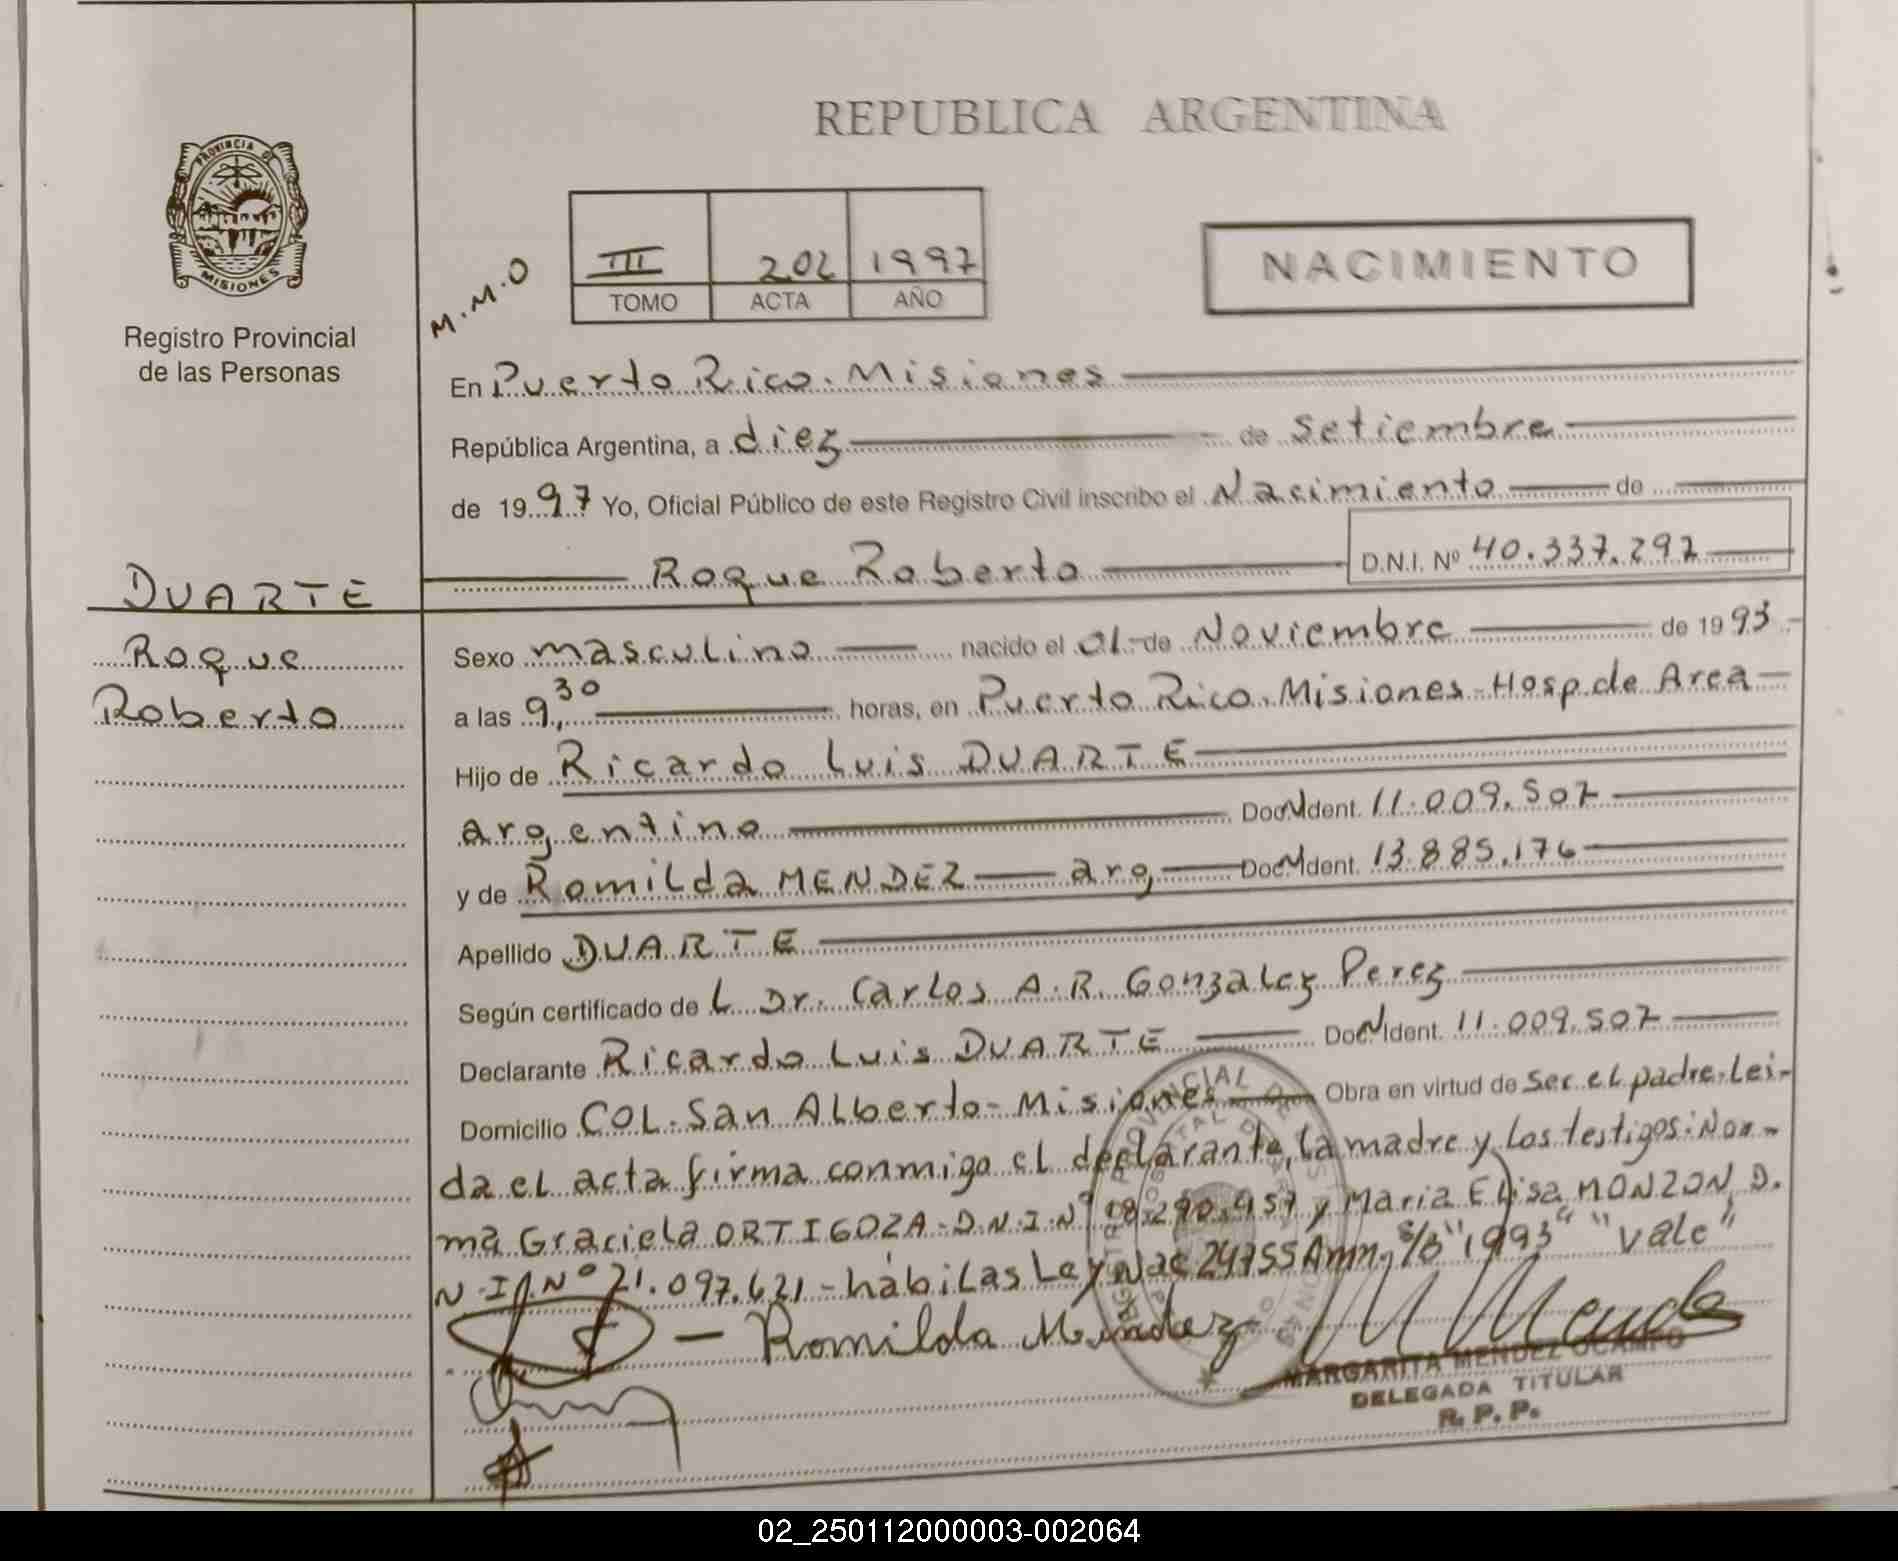 REPUBLICA ARGENTINA
PROVINCIA DE
MISIONES
Registro Provincial
de las Personas
M.M.O
III 202 1997
TOMO ACTA AÑO
NACIMIENTO
En Puerto Rico. Misiones
República Argentina, a diez de Setiembre
de 1997 Yo, Oficial Público de este Registro Civil inscribo el Nacimiento de
Roque Roberto D.N.I. Nº 40.337.292
DUARTE
Roque
Roberto
Sexo masculino nacido el 01 de Noviembre de 1993
a las 9,30 horas, en Puerto Rico. Misiones - Hosp de Area
Hijo de Ricardo Luis DUARTE
argentino Doc N Ident. 11.009.507
y de Romilda MENDEZ arg Doc N Ident. 13.885.176
Apellido DUARTE
Según certificado de L Dr. Carlos A. R. Gonzalez Perez
Declarante Ricardo Luis DUARTE Doc N Ident. 11.009.507
Domicilio COL. San Alberto - Misiones Obra en virtud de Ser el padre. Lei-
da el acta firma conmigo el declarante, la madre y los testigos: Nor-
ma Graciela ORTIGOZA - D.N.I. Nº 18.290.957 y Maria Elisa MONZON D.
N.I. Nº 21.097.621 - hábiles Ley Nac 24755 Amn. S/B "1993" "Vale"
Romilda Mendez
MARGARITA MENDEZ OCAMPO
DELEGADA TITULAR
R. P. P.
02_250112000003-002064